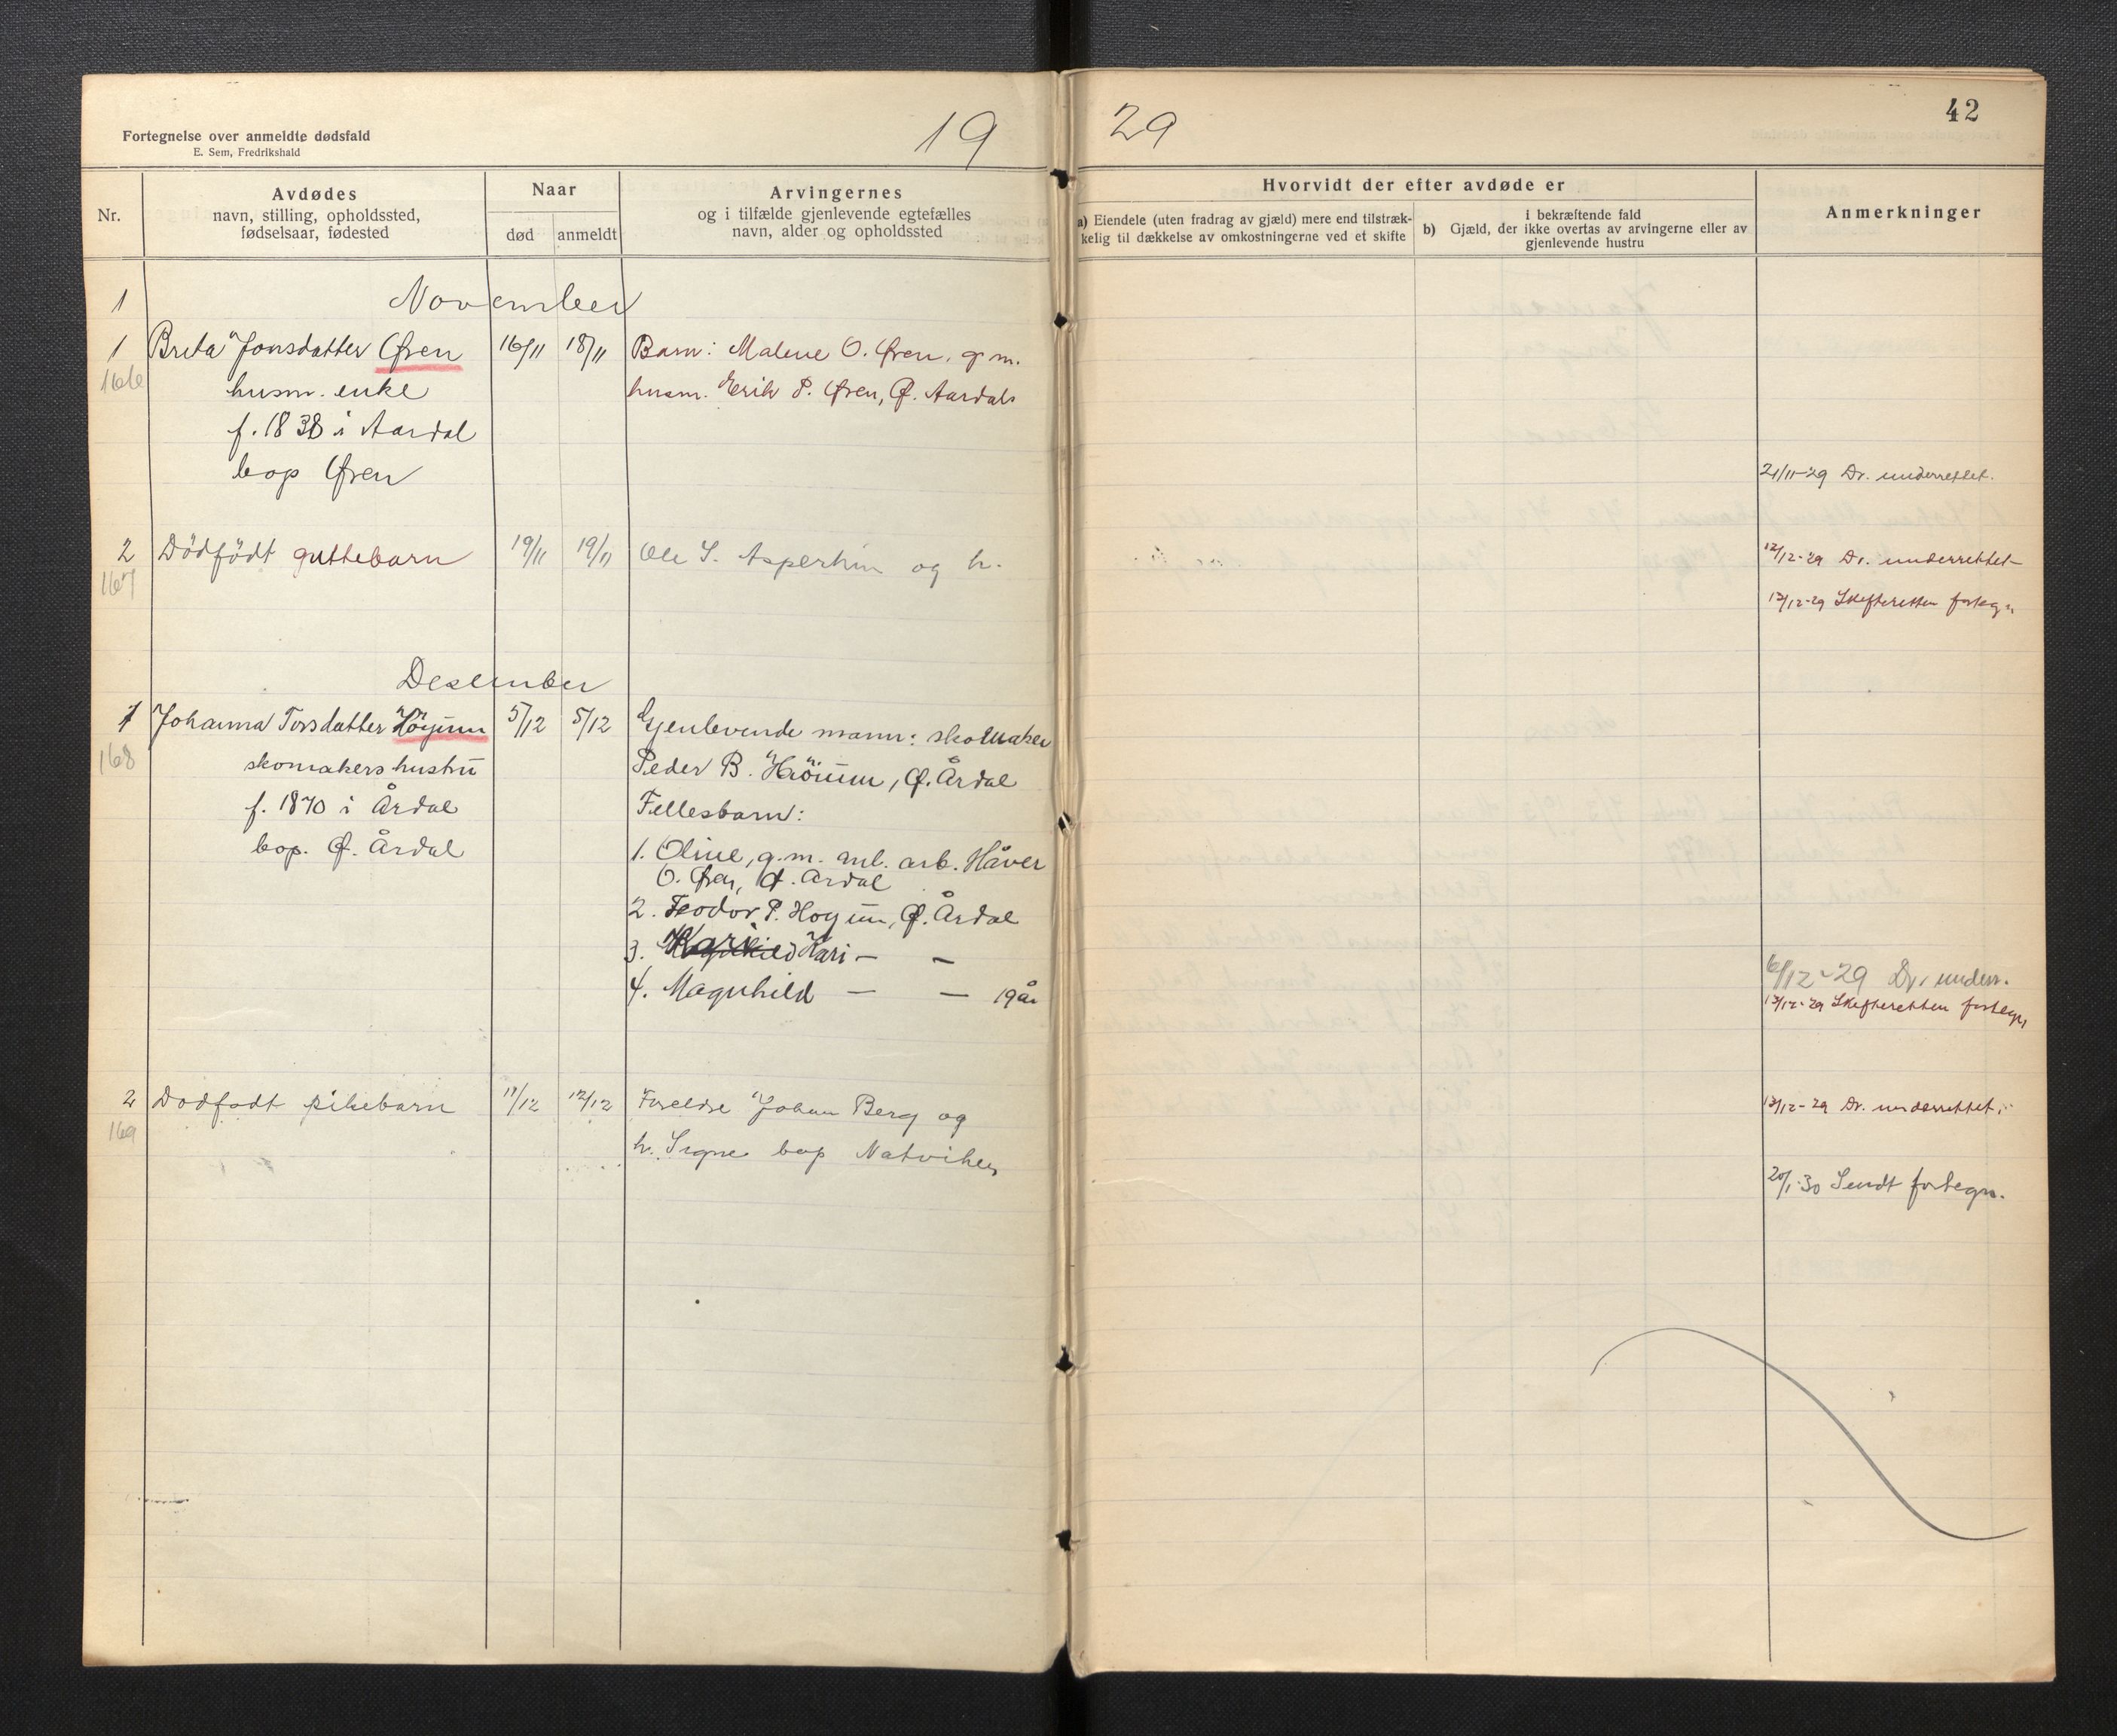 19 29
42
Fortegnelse over anmeldte dødsfald
E. Sem, Fredrikshald
Nr.
Avdødes
navn, stilling, opholdssted,
fødselsaar, fødested
Naar
død anmeldt
Arvingernes
og i tilfælde gjenlevende egtefælles
navn, alder og opholdssted
Hvorvidt der efter avdøde er
a) Eiendele (uten fradrag av gjæld) mere end tilstræk-
kelig til dækkelse av omkostningerne ved et skifte
i bekræftende fald
b) Gjæld, der ikke overtas av arvingerne eller av
gjenlevende hustru
Anmerkninger
1 November
1 Brita Jonsdatter Øren 16/11 18/11 Barn: Malene O. Øren, g.m.
166 husm. enke husm. Erik P. Øren, Ø. Aardal
f. 1838 i Aardal
bop Øren
21/11-29 Dr. underrettet.
2 Dödfödt guttebarn 19/11 19/11 Ole S. Asperheim og h. 12/12-29 Dr. underrettet
167
12/12-29 Skifteretten forteg.
Desember
1 Johanna Torsdatter Höyum 5/12 5/12 Gjenlevende mann: skomaker
168 skomakers hustru Peder B. Höium, Ø. Årdal
f. 1870 i Årdal Fellesbarn:
bop. Ø. Årdal 1. Oline, g.m. anl. arb. Håver
O. Øren, Ø. Årdal
2. Teodor P. Hoyum, Ø. Årdal
3. Kari — —
4. Magnhild — — 19 år
6/12-29 Dr. underr.
12/12-29 Skifteretten fortegn.
2 Dodfodt pikebarn 11/12 12/12 Foreldre Johan Berg og 13/12-29 Dr. underrettet.
169 h. Signe bop Natviken
20/1-30 Sendt fortegn.